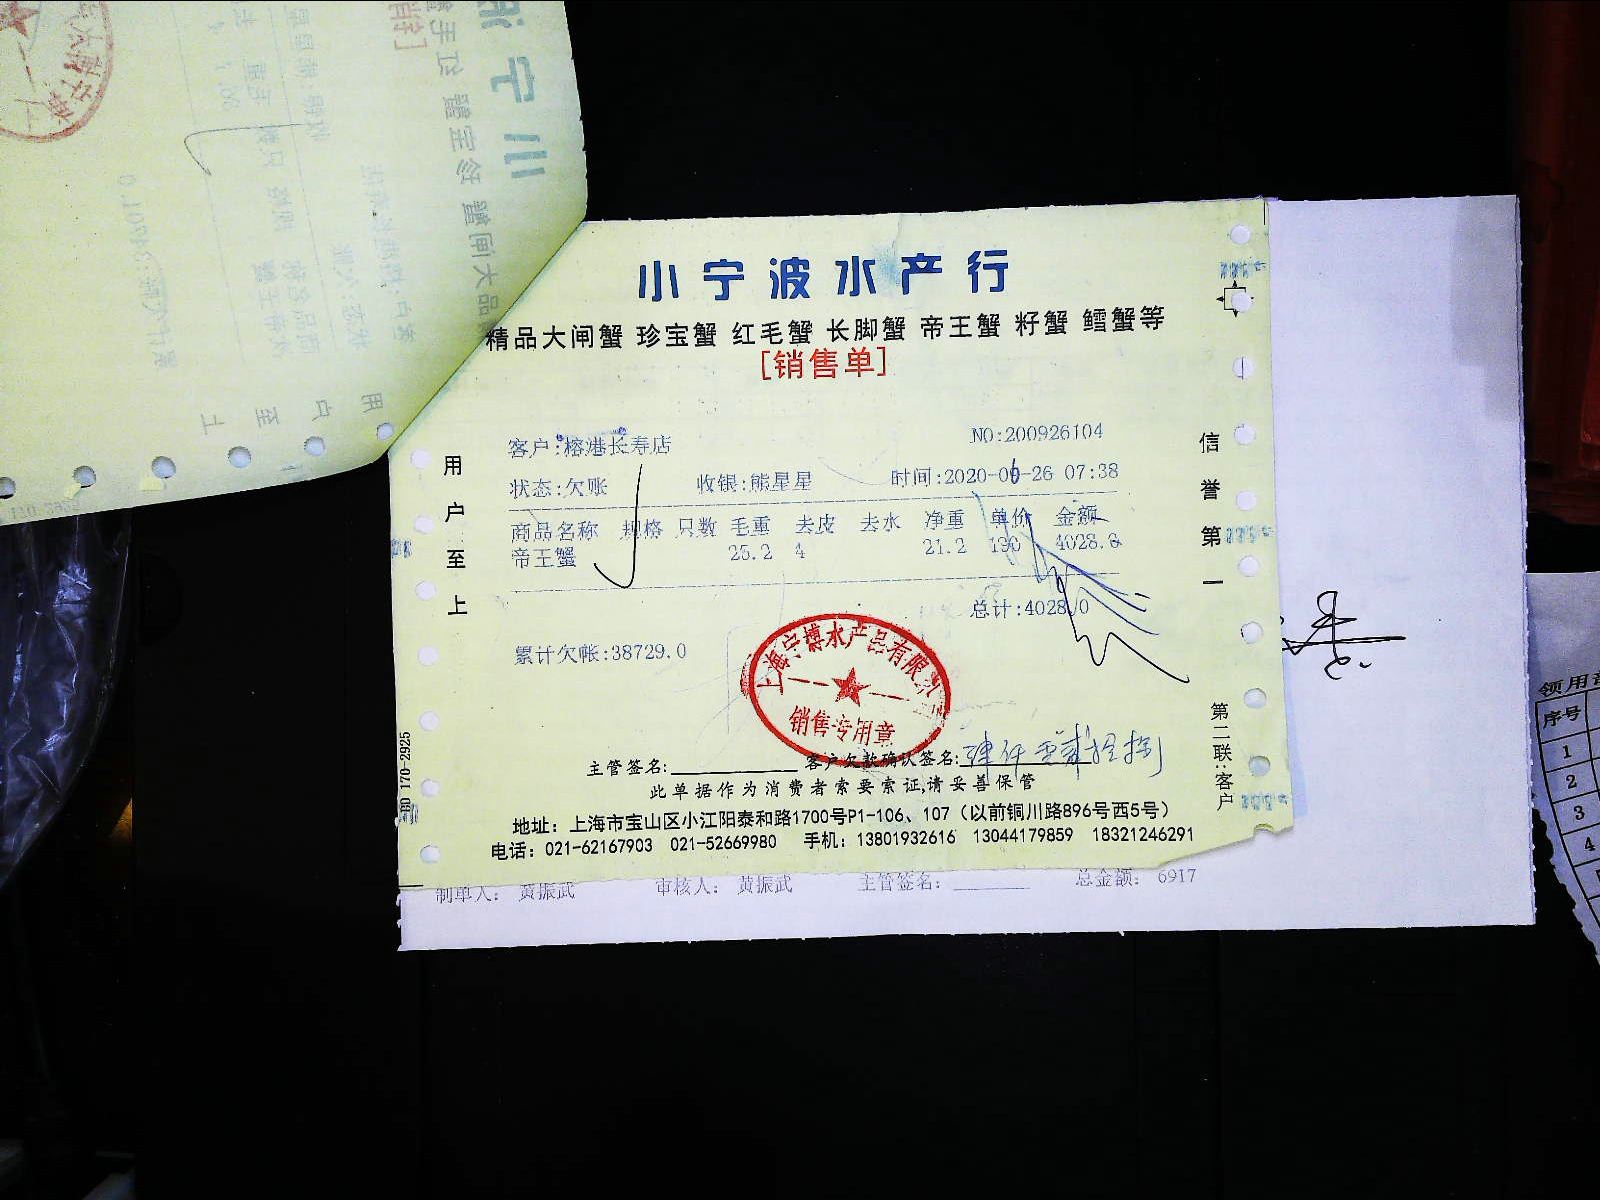 小宁波水产行
精品大闸蟹 珍宝蟹 红毛蟹 长脚蟹 帝王蟹 籽蟹 鳕蟹等
[销售单]
客户:榕港长寿店 NO:200926104
状态:欠账 收银:熊星星 时间:2020-09-26 07:38
商品名称 规格 只数 毛重 去皮 去水 净重 单价 金额
帝王蟹 25.2 4 21.2 190 4028.0
总计:4028.0
累计欠帐:38729.0
用户至上
信誉第一
第二联:客户
上海宁博水产品有限公司
销售专用章
主管签名: 客户欠款确认签名:
此单据作为消费者索要索证,请妥善保管
地址：上海市宝山区小江阳泰和路1700号P1-106、107（以前铜川路896号西5号）
电话：021-62167903 021-52669980 手机：13801932616 13044179859 18321246291
170-2925
制单人： 黄振武 审核人： 黄振武 主管签名： 总金额： 6917
序号
1
2
3
4